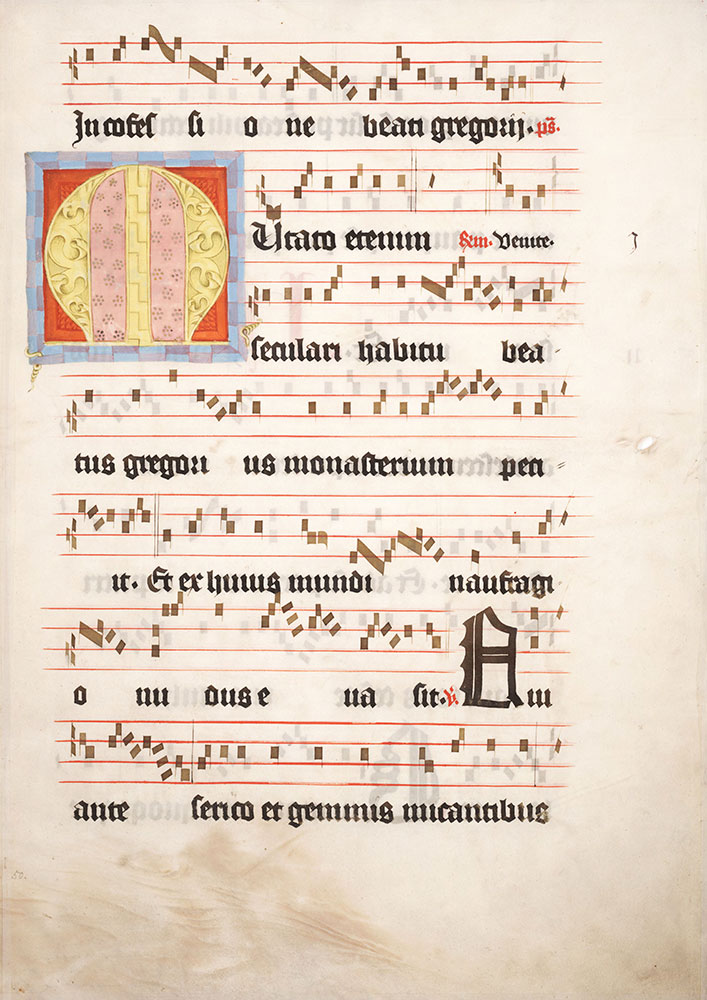 In cofes si o ne beati gregorij. ps̄.
MUtato etenim Rm. Venite.
seculari habitu bea-
tus gregori us monasterium peti=
it. Et ex huius mundi naufragi
o nu dus e ua sit. V. Qui
ante serico et gemmis micantibus